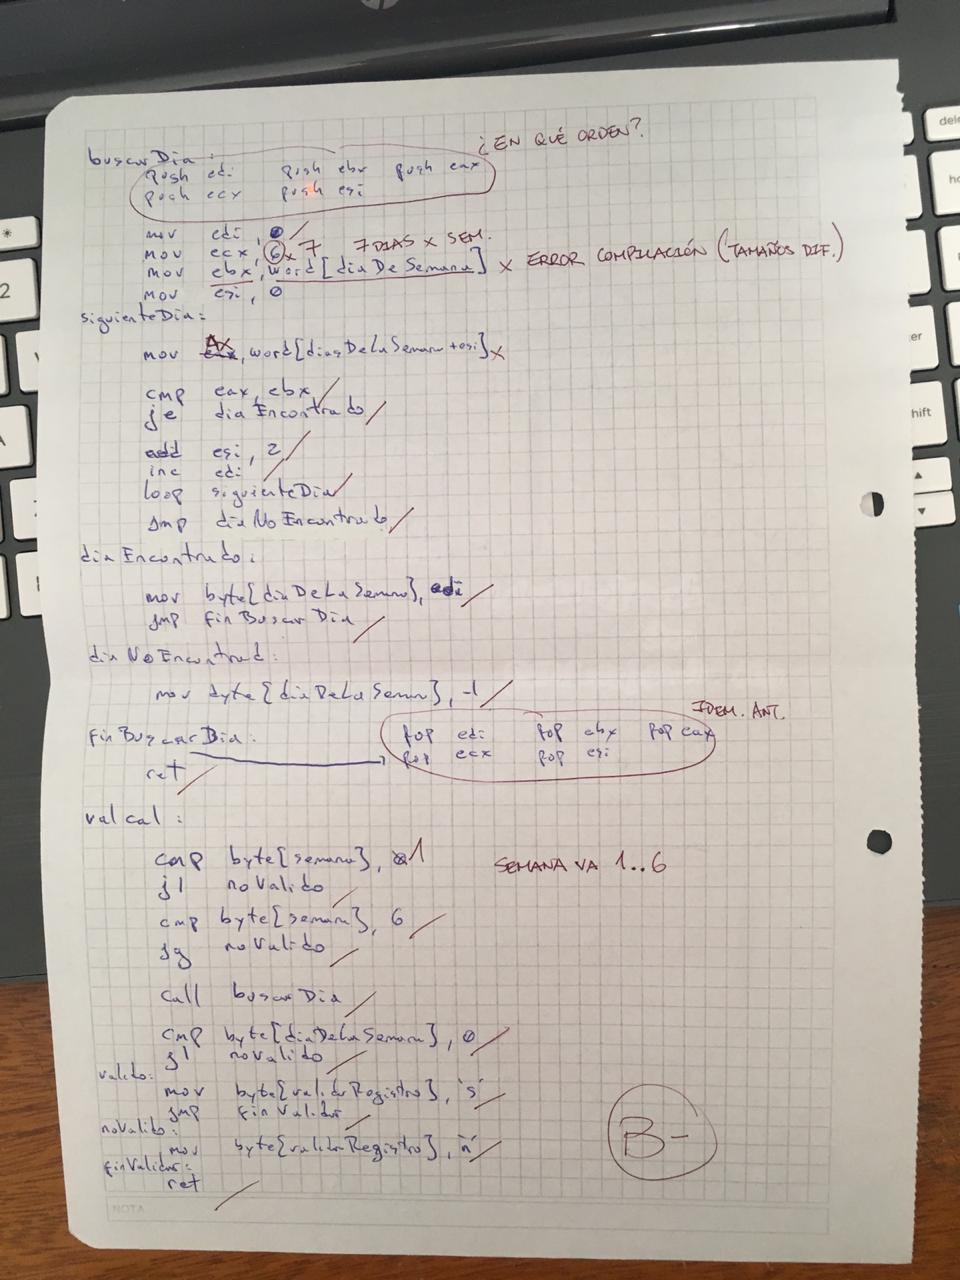 ¿EN QUÉ ORDEN?
buscarDia:
push edi push ebx push eax
push ecx push esi
mov edi, 0
mov ecx, 6 x 7 7 DIAS x SEM.
mov ebx, word[diaDeSemana] x ERROR COMPILACIÓN (TAMAÑOS DIF.)
mov esi, 0
siguienteDia:
mov AX, word[diasDeLaSemana+esi] x
cmp eax, ebx
je diaEncontrado
add esi, 2
inc edi
loop siguienteDia
jmp diaNoEncontrado
diaEncontrado:
mov byte[diaDeLaSemana], edi
jmp finBuscarDia
diaNoEncontrad:
mov byte[diaDeLaSeman], -1
IDEM. ANT.
finBuscarDia: pop edi pop ebx pop eax
pop ecx pop esi
ret
valcal:
cmp byte[semana], 1 SEMANA VA 1..6
jl noValido
cmp byte[semana], 6
jg noValido
call buscarDia
cmp byte[diaDeLaSemana], 0
jl noValido
valido:
mov byte[validarRegistro], 's'
jmp finValidar
noValido:
mov byte[validarRegistro], 'n'
finValidar:
ret
B-
NOTA